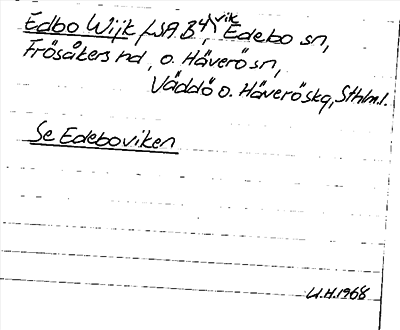 Edbo Wijk LSA B4, vik, Edebo sn,
Frösåkers hd, o. Häverö sn,
Väddö o. Häverö skg, Sthlm.l.
Se Edeboviken
U.H.1968